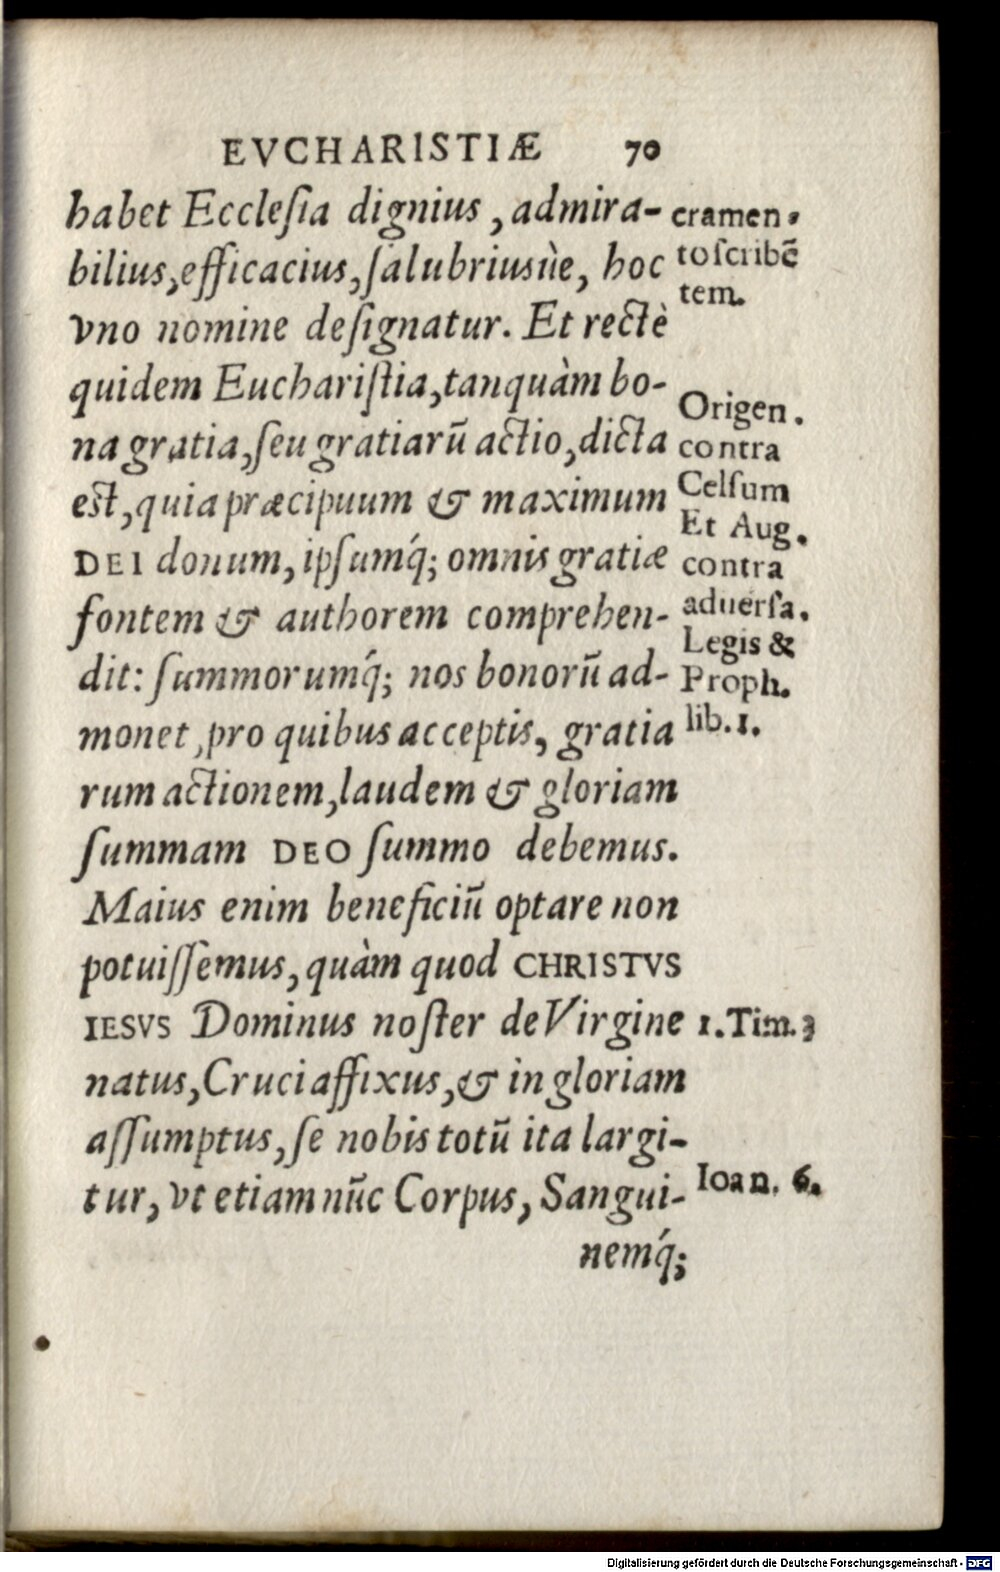 EVCHARISTIÆ 70
habet Eccleſia dignius, admira-
bilius, efficacius, ſalubriusùe, hoc
vno nomine deſignatur. Et rectè
quidem Euchariſtia, tanquàm bo-
na gratia, ſeu gratiarū actio, dicta
est, quia præcipuum & maximum
DEI donum, ipſumq́; omnis gratiæ
fontem & authorem comprehen-
dit: ſummorumq́; nos bonorū ad-
monet, pro quibus acceptis, gratia
rum actionem, laudem & gloriam
ſummam DEO ſummo debemus.
Maius enim beneficiū optare non
potuiſſemus, quàm quod CHRISTVS
IESVS Dominus noſter de Virgine
natus, Cruci affixus, & in gloriam
aſſumptus, ſe nobis totū ita largi-
tur, vt etiam nūc Corpus, Sangui-
nemq́;
cramen-
to ſcribē
tem.
Origen.
contra
Celſum
Et Aug.
contra
aduerſa.
Legis &
Proph.
lib. 1.
1. Tim. 3
Ioan. 6.
Digitalisierung gefördert durch die Deutsche Forschungsgemeinschaft - DFG